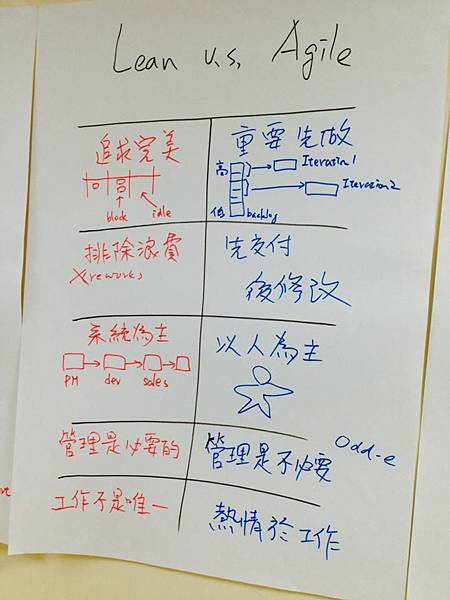 Lean v.s. Agile
追求完美
block idle
重要先做
高
Iteration 1
Iteration 2
低 backlog
排除浪費
X reworks
先交付
後修改
系統為主
PM dev sales
以人為主
管理是必要的
管理是不必要
Odd-e
工作不是唯一
熱情於工作